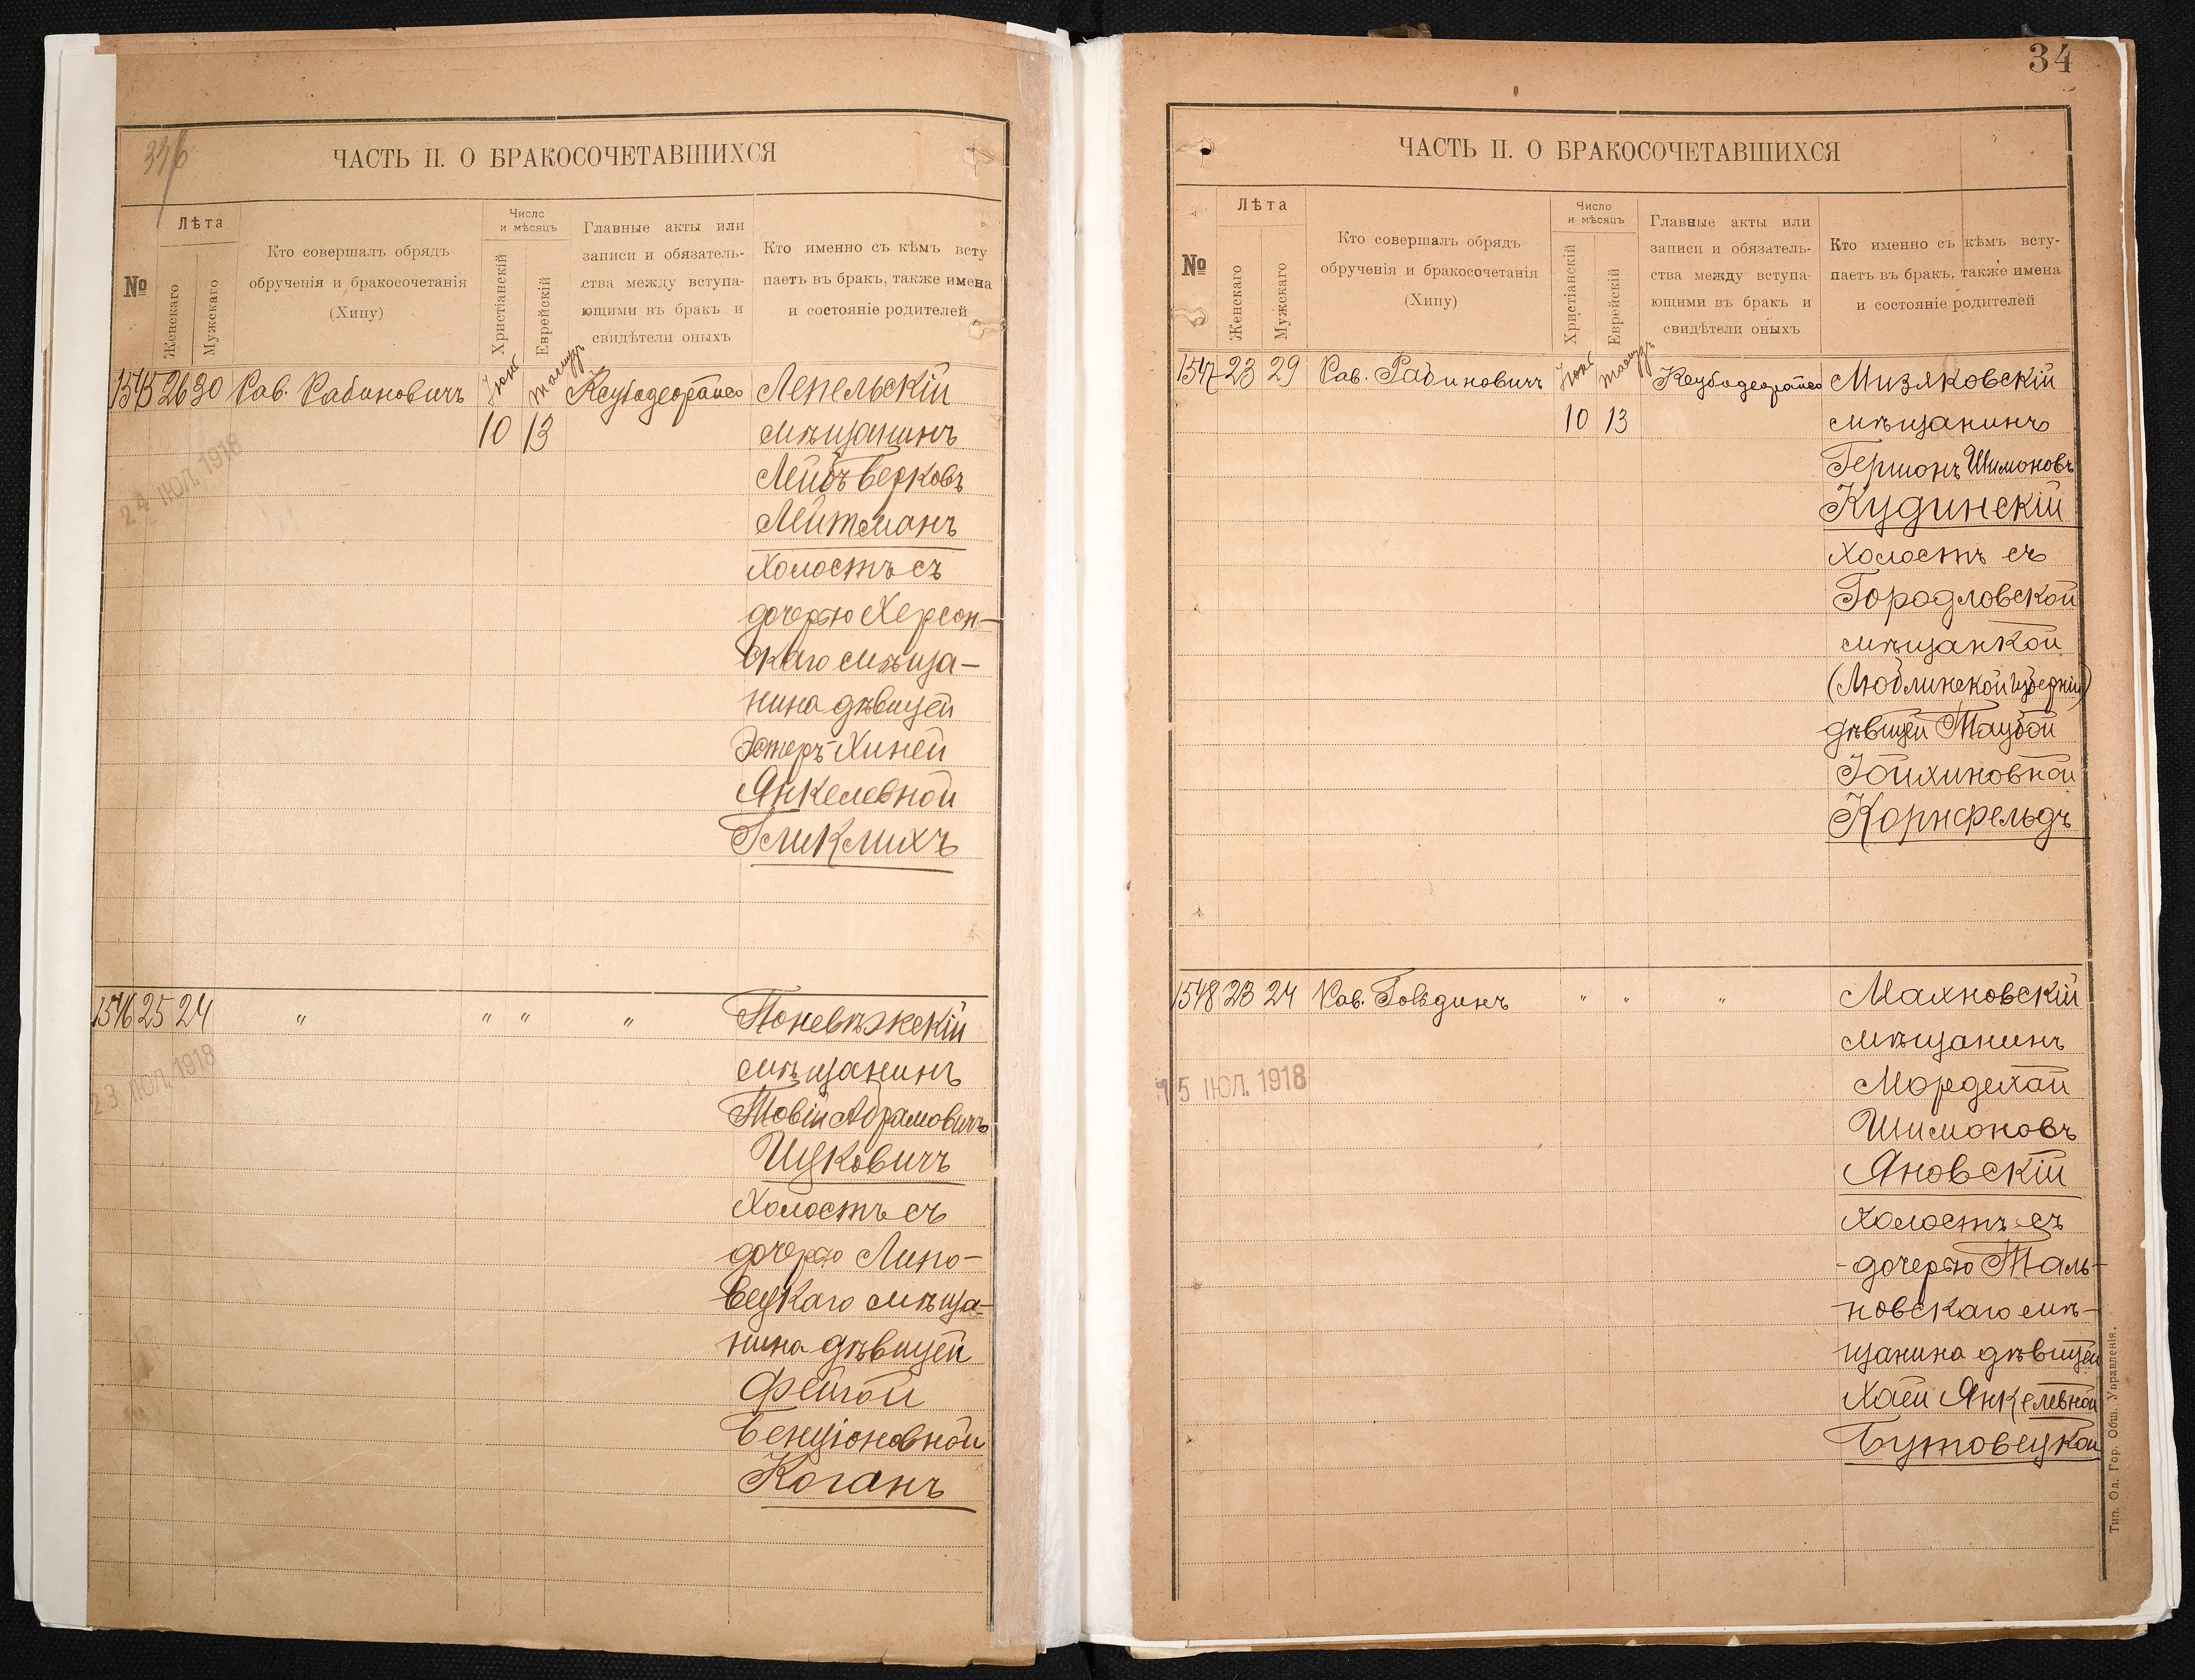 ЧАСТЬ II. О БРАКОСОЧЕТАВШИХСЯ
№
Лѣта
Женскаго
Мужскаго
Кто совершалъ обрядъ
обрученія и бракосочетанія
(Хипу)
Число
и мѣсяцъ
Христіанскій
Еврейскій
Главные акты или
записи и обязатель-
ства между вступа-
ющими въ бракъ и
свидѣтели оныхъ
Кто именно съ кѣмъ всту
паетъ въ бракъ, также имена
и состояніе родителей
1545 26 30 Рав. Рабиновичъ
10 13
Лепельскій
мѣщанинъ
Лейбъ Берковъ
Лейтманъ
холостъ съ
дочерью Херсон-
скаго мѣща-
нина дѣвицей
Эстеръ-Хиней
Янкелевной
Гликлихъ
24 ІЮЛ. 1918
1546 25 24 " " " "
Поневѣжскій
мѣщанинъ
Товій Абрамовичъ
Ицковичъ
холостъ съ
дочерью Липо-
вецкаго мѣща-
нина дѣвицей
Фейгой
Бенціоновной
Коганъ
23 ІЮЛ. 1918
34
ЧАСТЬ II. О БРАКОСОЧЕТАВШИХСЯ
№
Лѣта
Женскаго
Мужскаго
Кто совершалъ обрядъ
обрученія и бракосочетанія
(Хипу)
Число
и мѣсяцъ
Христіанскій
Еврейскій
Главные акты или
записи и обязатель-
ства между вступа-
ющими въ бракъ и
свидѣтели оныхъ
Кто именно съ кѣмъ всту-
паетъ въ бракъ, также имена
и состояніе родителей
1547 23 29 Рав. Рабиновичъ
10 13
Мизяковскій
мѣщанинъ
Гершонъ Шимоновъ
Кудинскій
холостъ съ
Городловской
мѣщанкой
(Люблинской губерніи)
дѣвицей Таубой
Іойхиновной
Корнфельдъ
1548 23 24 Рав. Гольдинъ " " "
Махновскій
мѣщанинъ
Мордехай
Шимоновъ
Яновскій
холостъ съ
дочерью Таль-
новскаго мѣ-
щанина дѣвицей
Хаей Янкелевной
Бутовецкой
15 ІЮЛ. 1918
Тип. Од. Гор. Общ. Управленія.